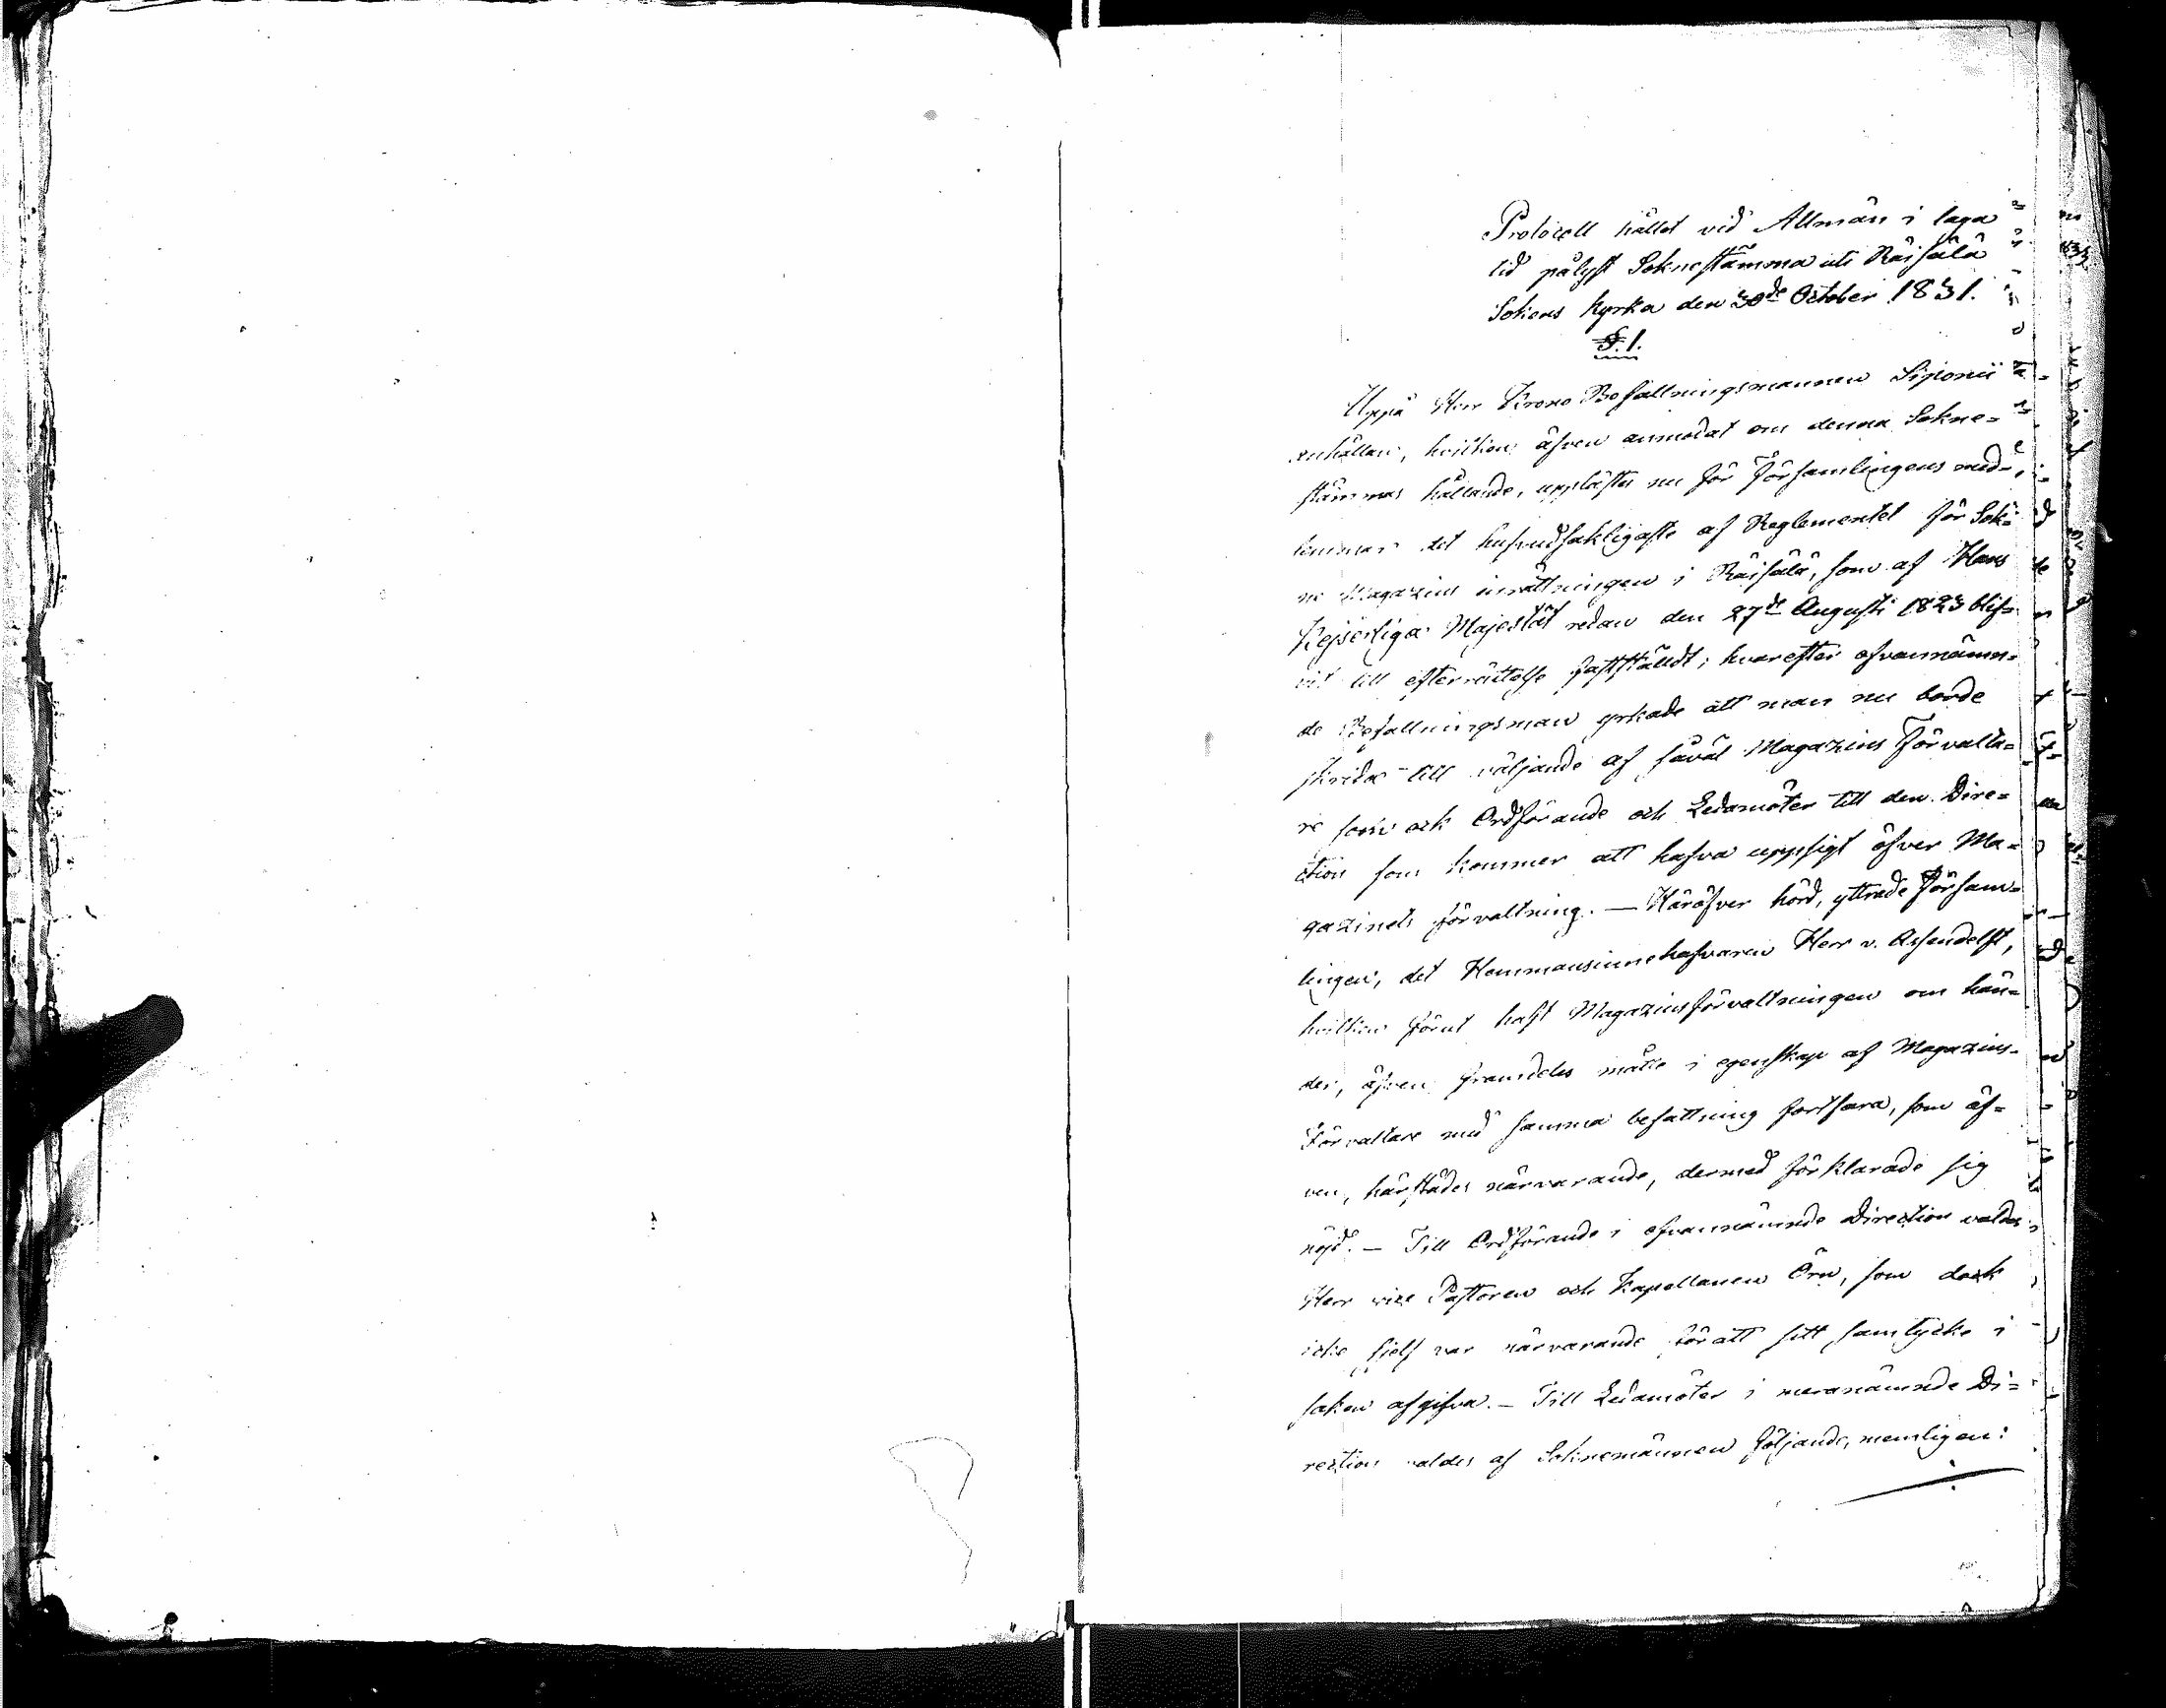 Protocoll hållet vid Allmän i laga
tid pålyst Soknestämma uti Räisälä
Sokens Kyrka den 30de October 1831.
§.1.
Uppå Herr Krono Befallningsmannen Siponii
anhållan, hvilken äfven anmodat om denna Sokne=
stämmas hållande, upplästes nu för Församlingens med=
lemmar det hufvudsakligaste af Reglementet för Sok=
ne Magazins inrättningen i Räisälä, som af Hans
Kejserliga Majestät redan den 27de Augusti 1823 blif=
vit till efterrättelse fastställdt; hvarefter ofvannämn=
de Befallningsman yrkade att man nu borde
skrida till väljande af såväl Magazins Förvalta=
re som ock Ordförande och Ledamöter till den Dire=
ction som kommer att hafva uppsigt öfver Ma=
gazinets förvaltning. — Häröfver hörd, yttrade Försam=
lingen, det Hemmansinnehafvaren Herr v. Assendelft,
hvilken förut haft Magazinsförvaltningen om hän=
der, äfven framdeles måtte i egenskap af Magazins-
Förvaltare med samma befattning fortfara, som äf=
ven, härstädes närvarande, dermed förklarade sig
nöjd. — Till Ordförande i ofvannämnde Direction valdes
Herr vice Pastoren och Kapellanen Örn, som dock
icke sjelf var närvarande för att sitt samtycke i
saken afgifva. — Till Ledamöter i meranämnde Di=
rection valdes af Soknemännen följande, nemligen: